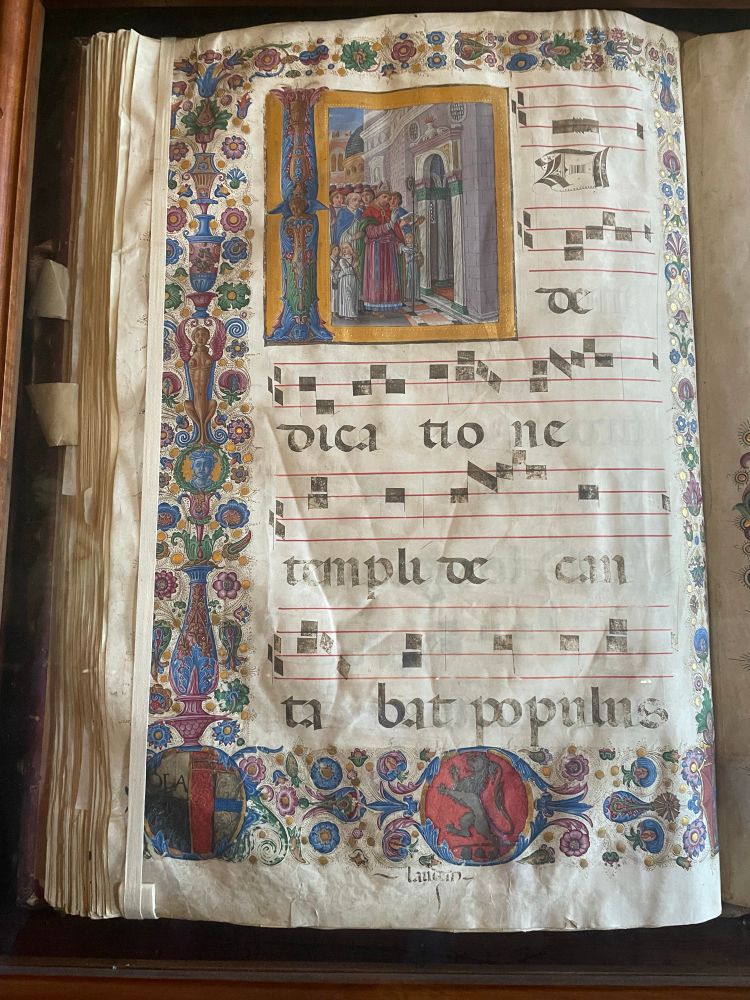 I N
de
dica tio ne
templi de can
ta bat populus
laudem